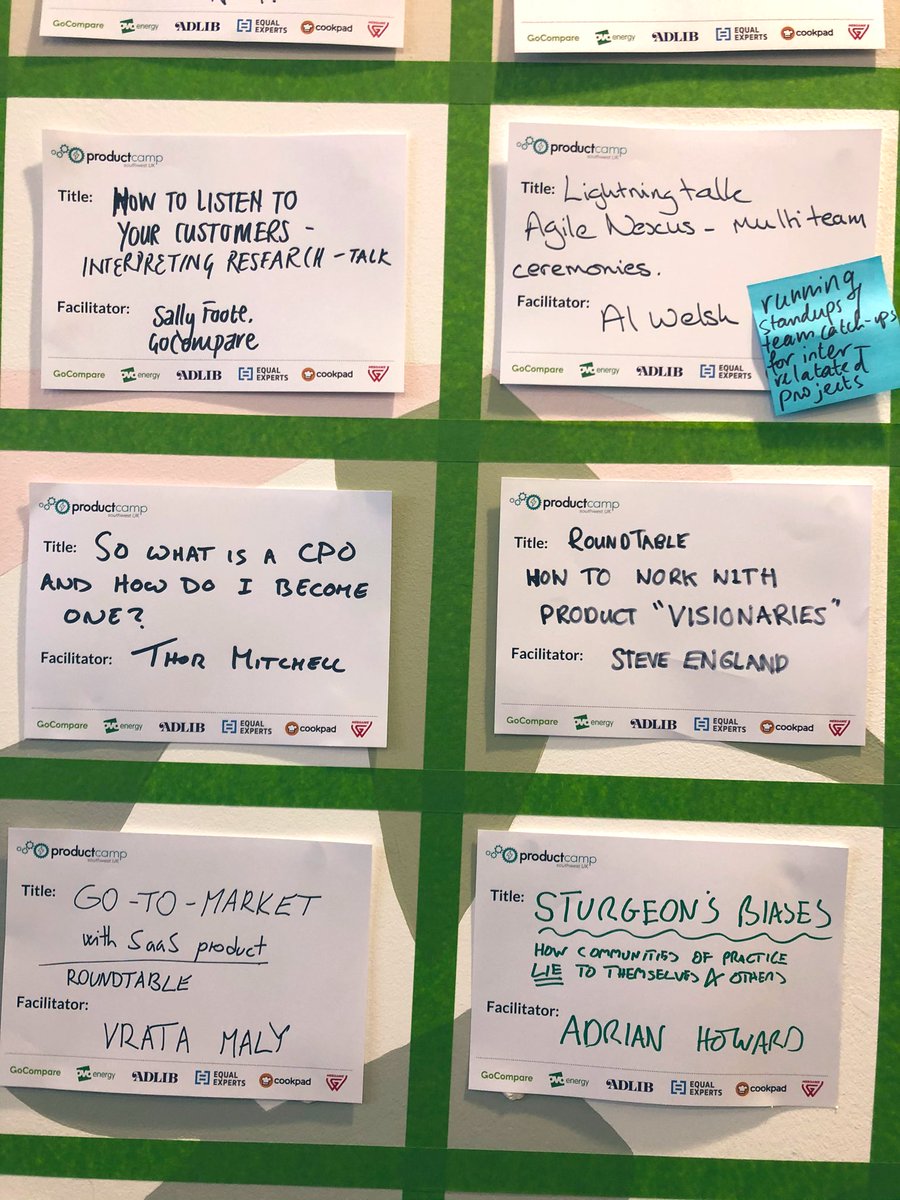 GoCompare PVC energy ADLIB EQUAL EXPERTS cookpad
GoCompare energy ADLIB EQUAL EXPERTS cookpad
productcamp
southwest UK
Title: HOW TO LISTEN TO
YOUR CUSTOMERS -
INTERPRETING RESEARCH - TALK
Facilitator: Sally Foote.
GoCompare
GoCompare energy ADLIB EQUAL EXPERTS cookpad
productcamp
southwest UK
Title: Lightning talk
Agile Nexus - multi team
ceremonies.
Facilitator: Al Welsh
GoCompare energy ADLIB EQUAL EXPERTS
running
standups/
team catch-ups
for inter-
relatated
projects
productcamp
southwest UK
Title: SO WHAT IS A CPO
AND HOW DO I BECOME
ONE?
Facilitator: THOR MITCHELL
GoCompare energy ADLIB EQUAL EXPERTS cookpad
productcamp
southwest UK
Title: ROUNDTABLE
HOW TO WORK WITH
PRODUCT "VISIONARIES"
Facilitator: STEVE ENGLAND
GoCompare energy ADLIB EQUAL EXPERTS cookpad
productcamp
southwest UK
Title: GO-TO-MARKET
with SaaS product
ROUNDTABLE
Facilitator:
VRATA MALY
GoCompare energy ADLIB EQUAL EXPERTS cookpad
productcamp
southwest UK
Title: STURGEON'S BIASES
HOW COMMUNITIES OF PRACTICE
LIE TO THEMSELVES & OTHERS
Facilitator:
ADRIAN HOWARD
GoCompare energy ADLIB EQUAL EXPERTS cookpad